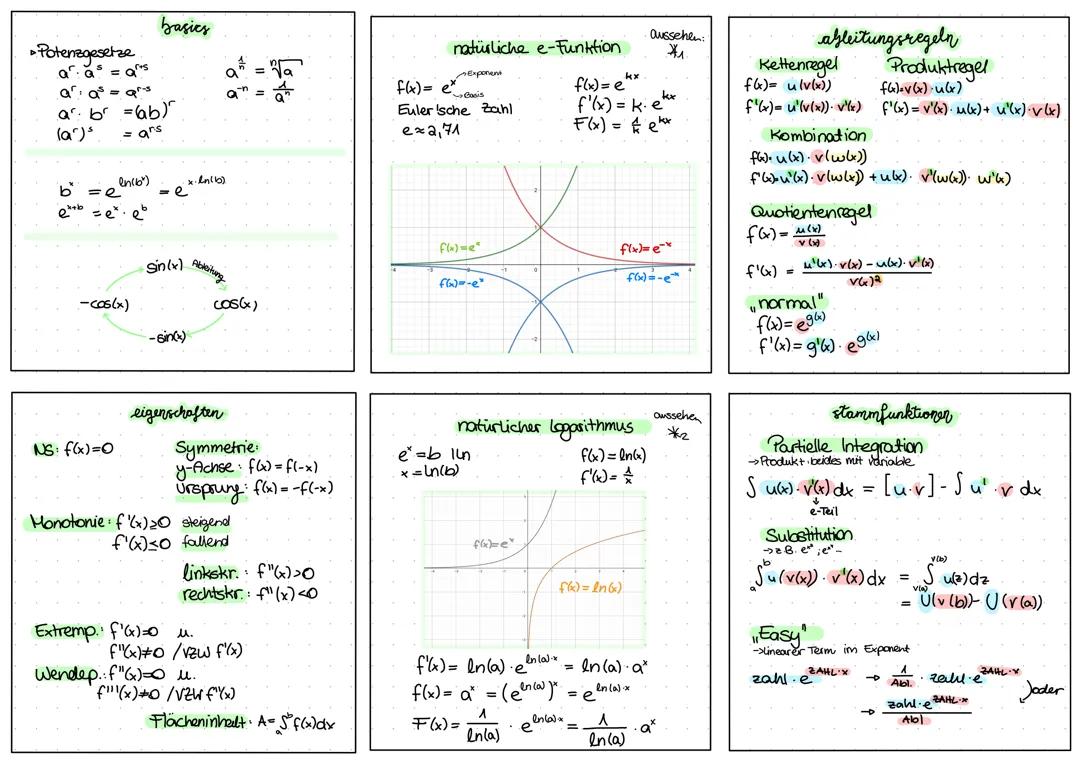 basics
▹Potenzgesetze
aʳ · aˢ = aʳ⁺ˢ
aʳ : aˢ = aʳ⁻ˢ
aʳ · bʳ = (ab)ʳ
(aʳ)ˢ = aʳ·ˢ
a^(1/n) = ⁿ√a
a⁻ⁿ = 1/aⁿ
bˣ = e^(ln(bˣ)) = e^(x·ln(b))
e^(x+b) = eˣ · eᵇ
sin(x) Ableitung
-cos(x) cos(x)
-sin(x)
natürliche e-Funktion
aussehen:
*1
f(x) = eˣ →Exponent →Basis
Euler'sche Zahl
e≈2,71
f(x) = e^(kx)
f'(x) = k · e^(kx)
F(x) = 1/k e^(kx)
2
1
f(x)=eˣ f(x)=e⁻ˣ
-4 -3 -2 -1 0 1 2 3 4
f(x)=-eˣ f(x)=-e⁻ˣ
-1
-2
ableitungsregeln
Kettenregel
f(x)= u(v(x))
f'(x)= u'(v(x)) · v'(x)
Produktregel
f(x)=v(x) · u(x)
f'(x)= v'(x) · u(x) + u'(x) · v(x)
Kombination
f(x)= u(x) · v(w(x))
f'(x)=u'(x) · v(w(x)) + u(x) · v'(w(x)) · w'(x)
Quotientenregel
f(x) = u(x)/v(x)
f'(x) = u'(x) · v(x) - u(x) · v'(x) / v(x)²
„normal"
f(x) = e^(g(x))
f'(x) = g'(x) · e^(g(x))
eigenschaften
NS: f(x)=0
Symmetrie:
y-Achse: f(x) = f(-x)
Ursprung: f(x) = -f(-x)
Monotonie: f'(x)≥0 steigend
f'(x)≤0 fallend
linkskr.: f''(x)>0
rechtskr.: f''(x)<0
Extremp.: f'(x)=0 u.
f''(x)≠0 /VZW f'(x)
Wendep.: f''(x)=0 u.
f'''(x)≠0 /VZW f''(x)
Flächeninhalt: A= ₐ∫ᵇ f(x)dx
natürlicher Logarithmus
aussehen
*2
eˣ = b |ln
x = ln(b)
f(x) = ln(x)
f'(x) = 1/x
f(x)=eˣ
f(x) = ln(x)
f'(x) = ln(a) · e^(ln(a)·x) = ln(a) · aˣ
f(x) = aˣ = (e^(ln(a)))ˣ = e^(ln(a)·x)
F(x) = 1/ln(a) · e^(ln(a)·x) = 1/ln(a) · aˣ
stammfunktionen
Partielle Integration
→Produkt, beides mit Variable
∫ u(x) · v'(x) dx = [u·v] - ∫ u' · v dx
↓
e-Teil
Substitution
→ z.B. e^(x²)
ₐ∫ᵇ u(v(x)) · v'(x) dx = ∫ v(a) v(b) u(z) dz
= U(v(b)) - U(v(a))
„Easy"
→linearer Term im Exponent
zahl · e^(ZAHL·x) → 1/Abl. · zahl · e^(ZAHL·x)
oder
→ zahl·e^(ZAHL·x) / Abl